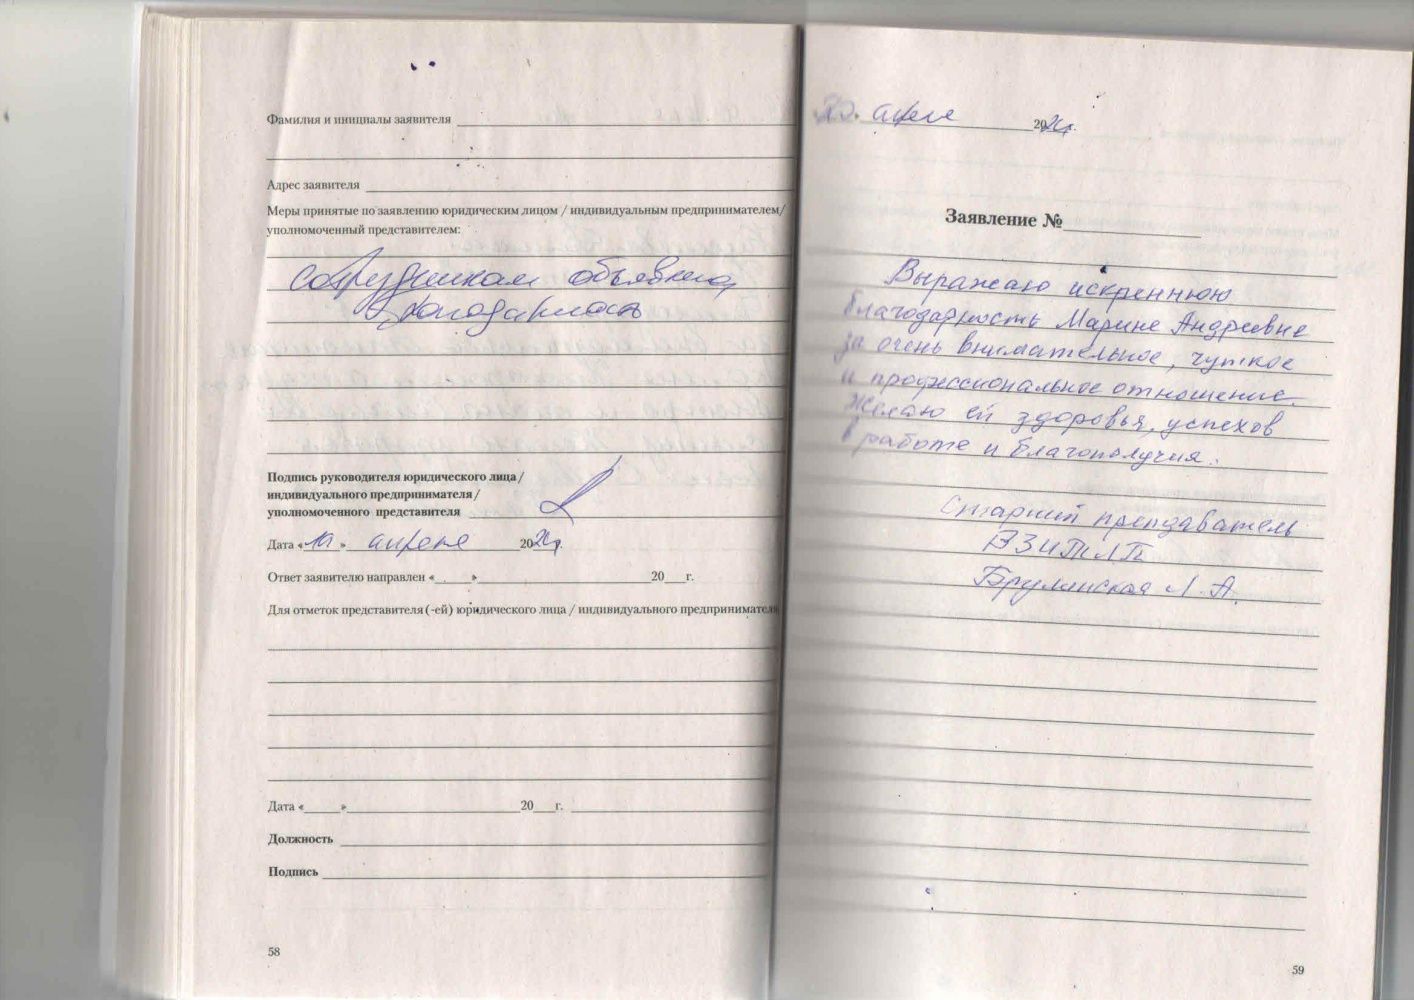 Фамилия и инициалы заявителя
Адрес заявителя
Меры принятые по заявлению юридическим лицом / индивидуальным предпринимателем/
уполномоченный представителем:
сотрудникам объявлена
благодарность
Подпись руководителя юридического лица/
индивидуального предпринимателя/
уполномоченного представителя
Дата « » апреля 20 г.
Ответ заявителю направлен « » 20 г.
Для отметок представителя (-ей) юридического лица / индивидуального предпринимателя
Дата « » 20 г.
Должность
Подпись
58
20 г.
Заявление №
Выражаю искреннюю
благодарность Марине Андреевне
за очень внимательное, чуткое
и профессиональное отношение.
Желаю ей здоровья, успехов
в работе и благополучия.
Старший преподаватель
ВЗИТЛП
Брулинская Л. А.
59